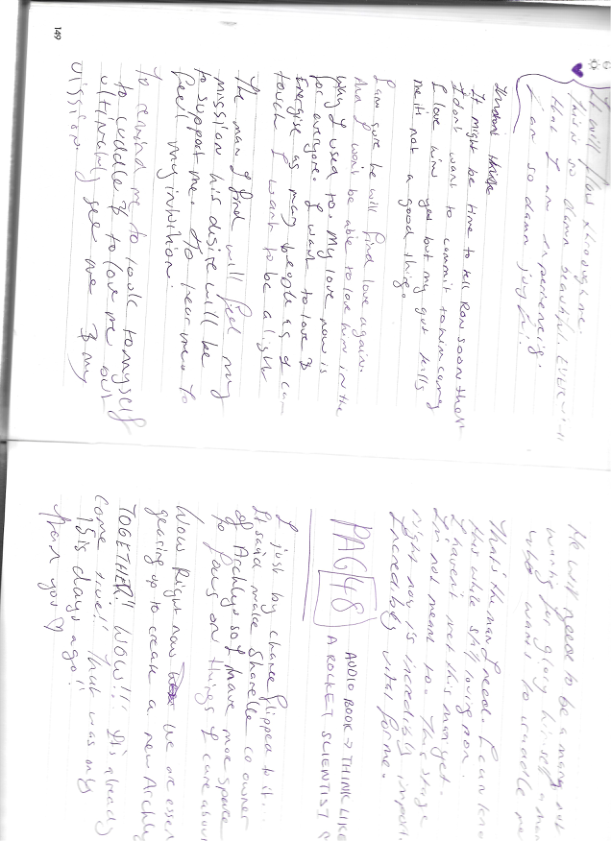 It will flow through me.
This is so damn beautiful.
that I am experiencing.
I am so damn joyful!!
It might be time to tell Ron soon that
I don't want to commit to him can
I love him yes but my gut tells
me it not a good thing.
I am sure he will find love again.
And I won't be able to love him in the
way I used to. My love now is
for everyone. I want to love &
Energise as many people as I can
touch I want to be a light
The man I find will feel my
mission his desire will be
to support me. To hear me to
feel my intuition.
To remind me to look to myself
to cuddle & to love me but
ultimately see me & my
mission.
149
He will need to be a man, not
waiting for glory himself a man
who wants to cuddle me
That's the man I need. I can
this while still loving Ron.
I haven't met this man yet.
I'm not meant to. This stage
right now is incredibly import
Incredibly vital for me.
PAG 48
AUDIO BOOK → THINK LIKE
A ROCKET SCIENTIST
I just by chance flipped to it...
It said make Sharelle co owner
of Archly so I have more space
to focus on things I care about
Wow Right now we are
gearing up to create a new Archly
TOGETHER!! WOW!!! It's already
come true!! That was only
15 days ago!!
Thank you ♡